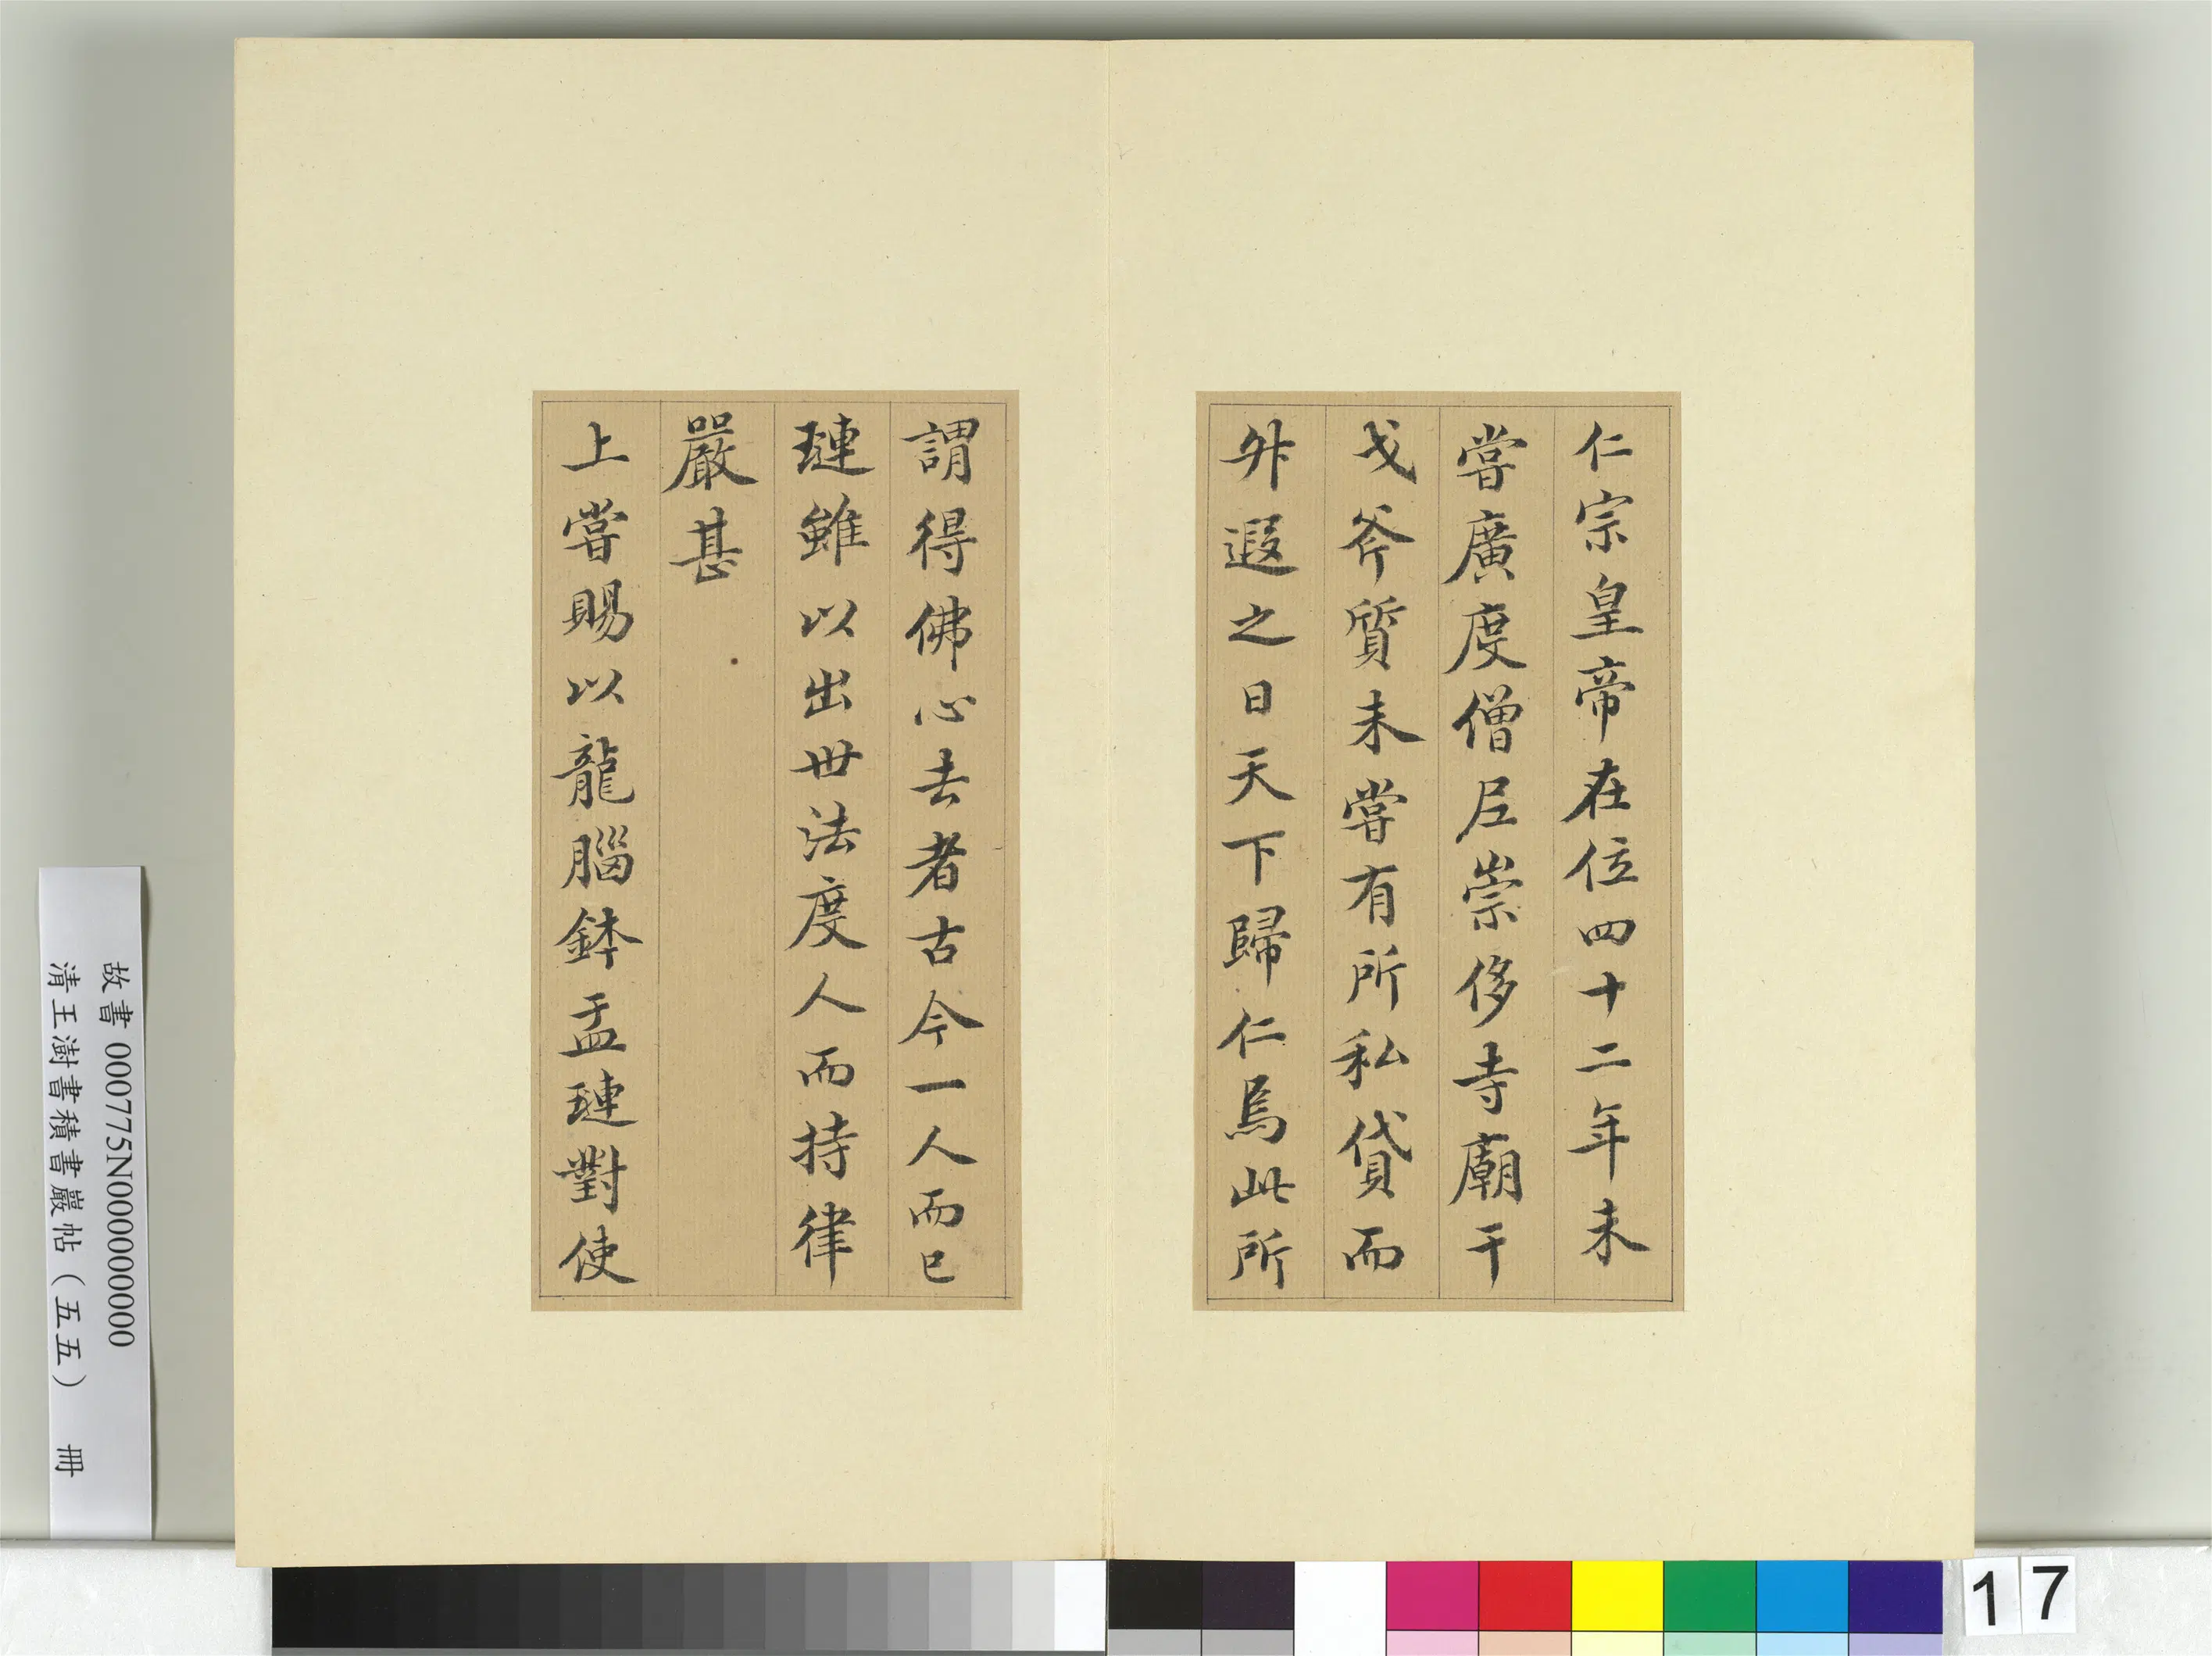 仁宗皇帝在位四十二年未
嘗廣度僧尼崇侈寺廟干
戈斧質未嘗有所私貸而
升遐之日天下歸仁焉此所
謂得佛心法者古今一人而已
璉雖以出世法度人而持律
嚴甚
上嘗賜以龍腦鉢盂璉對使
故書 000775N000000000
清王澍書積書巖帖（五五） 冊
17